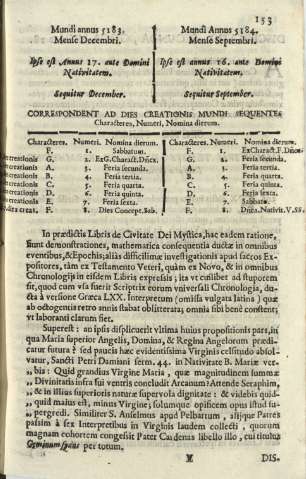 153
Mundi annus 5183. Mundi Annus 5184.
Mense Decembri. Mense Septembri.
Ipse est Annus 17. ante Domini Ipse est annus 16. ante Domini
Nativitatem. Nativitatem.
Sequitur December. Sequitur September.
CORRESPONDENT AD DIES CREATIONIS MUNDI SEQUENTES
Characteres, Numeri, Nomina dierum.
Characteres. Numeri. Nomina dierum. Characteres. Numeri. Nomina dierum.
F. 1. Sabbatum. F. 1.
G. 2. G. 2. Feria secunda.
A. 3. Feria secunda. A. 3. Feria tertia.
B. 4. Feria tertia. B. 4. Feria quarta.
C. 5. Feria quarta. C. 5. Feria quinta.
D. 6. Feria quinta. D. 6. Feria sexta.
E. 7. Feria sexta. E. 7. Sabbato.
F. 8. Dies Concept. Sab. F. 8.
In prædictis Libris de Civitate Dei Mystica, hac eadem ratione,
fiunt demonstrationes, mathematica consequentia ductæ in omnibus
eventibus, & Epochis; aliàs difficilimæ investigationis apud sacros Ex-
positores, tàm ex Testamento Veteri, quàm ex Novo, & in omnibus
Chronologijs in eisdem Libris expressis; ita ut cuilibet ad stuporem
sit, quod cum vis fuerit Scriptrix eorum universali Chronologia, duc-
ta à versione Græca LXX. Interpretum (omissa vulgata latina) quæ
ab octogenti retro annis stabat oblitterata; omnia sibi benè constent;
ut laboranti clarum fiet.
Superest: an ipsis displicuerit vltima huius propositionis pars, in
qua Maria superior Angelis, Domina, & Regina Angelorum prædi-
catur futura? sed paucis hæc evidentissima Virginis celsitudo absol-
vatur, Sancti Petri Damiani serm. 44. in Nativitate B. Mariæ ver-
bis: Quid grandius Virgine Maria, quæ magnitudinem summæ
„ Divinitatis infra sui ventris conclusit Arcanum? Attende Seraphim,
„ & in illius superioris naturæ supervola dignitate: & videbis quid-
„ quid maius est, minus Virgine; solumque opificem opus istud su-
„ pergredi. Similiter S. Anselmus apud Pelbartum, alijque Patres
passim à sex Interpretibus in Virginis laudem collecti, quorum
magnam cohortem congessit Pater Cardenas libello illo, cui titulus
Geminum sydus per totum.
V DIS-